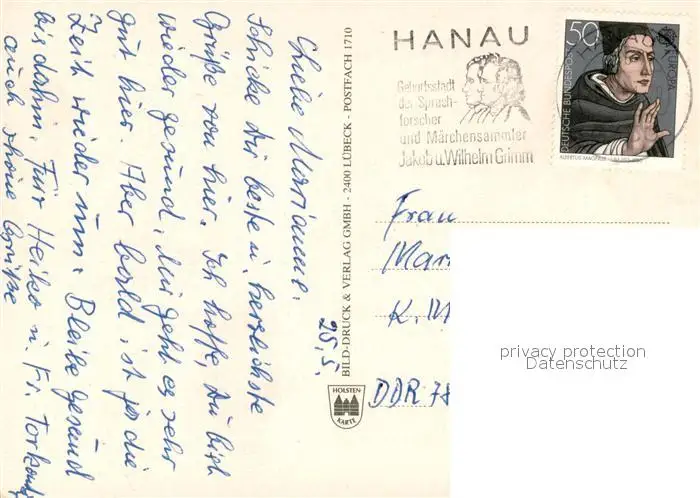 Liebe Marianne.
Schicke dir beste u. herzlichste
Grüße von hier. Ich hoffe, du bist
wieder gesund. Mir geht es sehr
gut hier. Aber bald ist ja die
Zeit wieder um. Bleibe gesund
bis dahin. Für Heiko u. Fr.
auch schöne Grüße
25.5.
BILD-DRUCK & VERLAG GMBH - 2400 LÜBECK - POSTFACH 1710
HOLSTEN-
KARTE
HANAU
Geburtsstadt
der Sprach-
forscher
und Märchensammler
Jakob u. Wilhelm Grimm
50
DEUTSCHE BUNDESPOST
EUROPA
ALBERTUS MAGNUS
Frau
Mar
K. M
DDR 78
privacy protection
Datenschutz